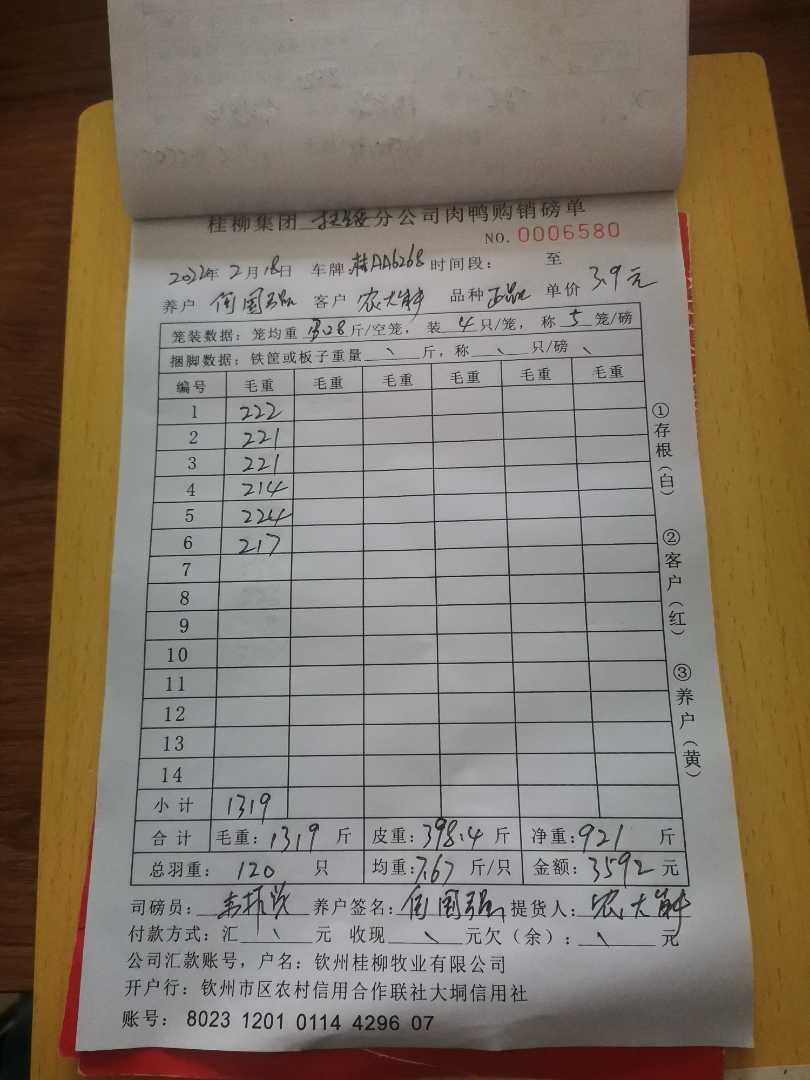 桂柳集团 分公司肉鸭购销磅单
NO. 0006580
2022年 2月18日 车牌:桂AA6268 时间段: 至
养户 国强 客户 农大 品种 正品 单价 3.9元
笼装数据: 笼均重 13.28 斤/空笼, 装 4 只/笼, 称 5 笼/磅
捆脚数据: 铁筐或板子重量 \ 斤, 称 \ 只/磅 \
编号 毛重 毛重 毛重 毛重 毛重 毛重
1 222
2 221
3 221
4 214
5 224
6 217
7
8
9
10
11
12
13
14
小计 1319
合计 毛重: 1319 斤 皮重: 398.4 斤 净重: 921 斤
总羽重: 120 只 均重: 7.67 斤/只 金额: 3592 元
司磅员: 养户签名: 国强 提货人: 农大
付款方式: 汇 \ 元 收现 \ 元欠(余): \ 元
公司汇款账号, 户名: 钦州桂柳牧业有限公司
开户行: 钦州市区农村信用合作联社大垌信用社
账号: 8023 1201 0114 4296 07
①存根(白)
②客户(红)
③养户(黄)